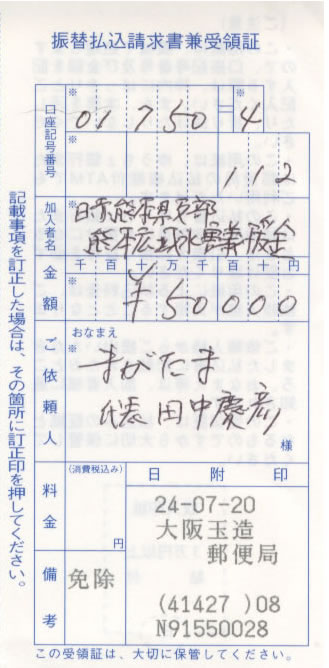 振替払込請求書兼受領証
口座記号番号
※ ※
01750=4
※
112
加入者名
※
日赤熊本県支部
熊本広域水害義援金
金額
千百十万千百十円
※
¥50000
ご依頼人
おなまえ
※
まがたま
代表 田中慶彦
様
料金
(消費税込み)
円
日附印
24-07-20
大阪玉造
郵便局
(41427 )08
N91550028
備考
免除
この受領証は、大切に保管してください。
記載事項を訂正した場合は、その箇所に訂正印を押してください。